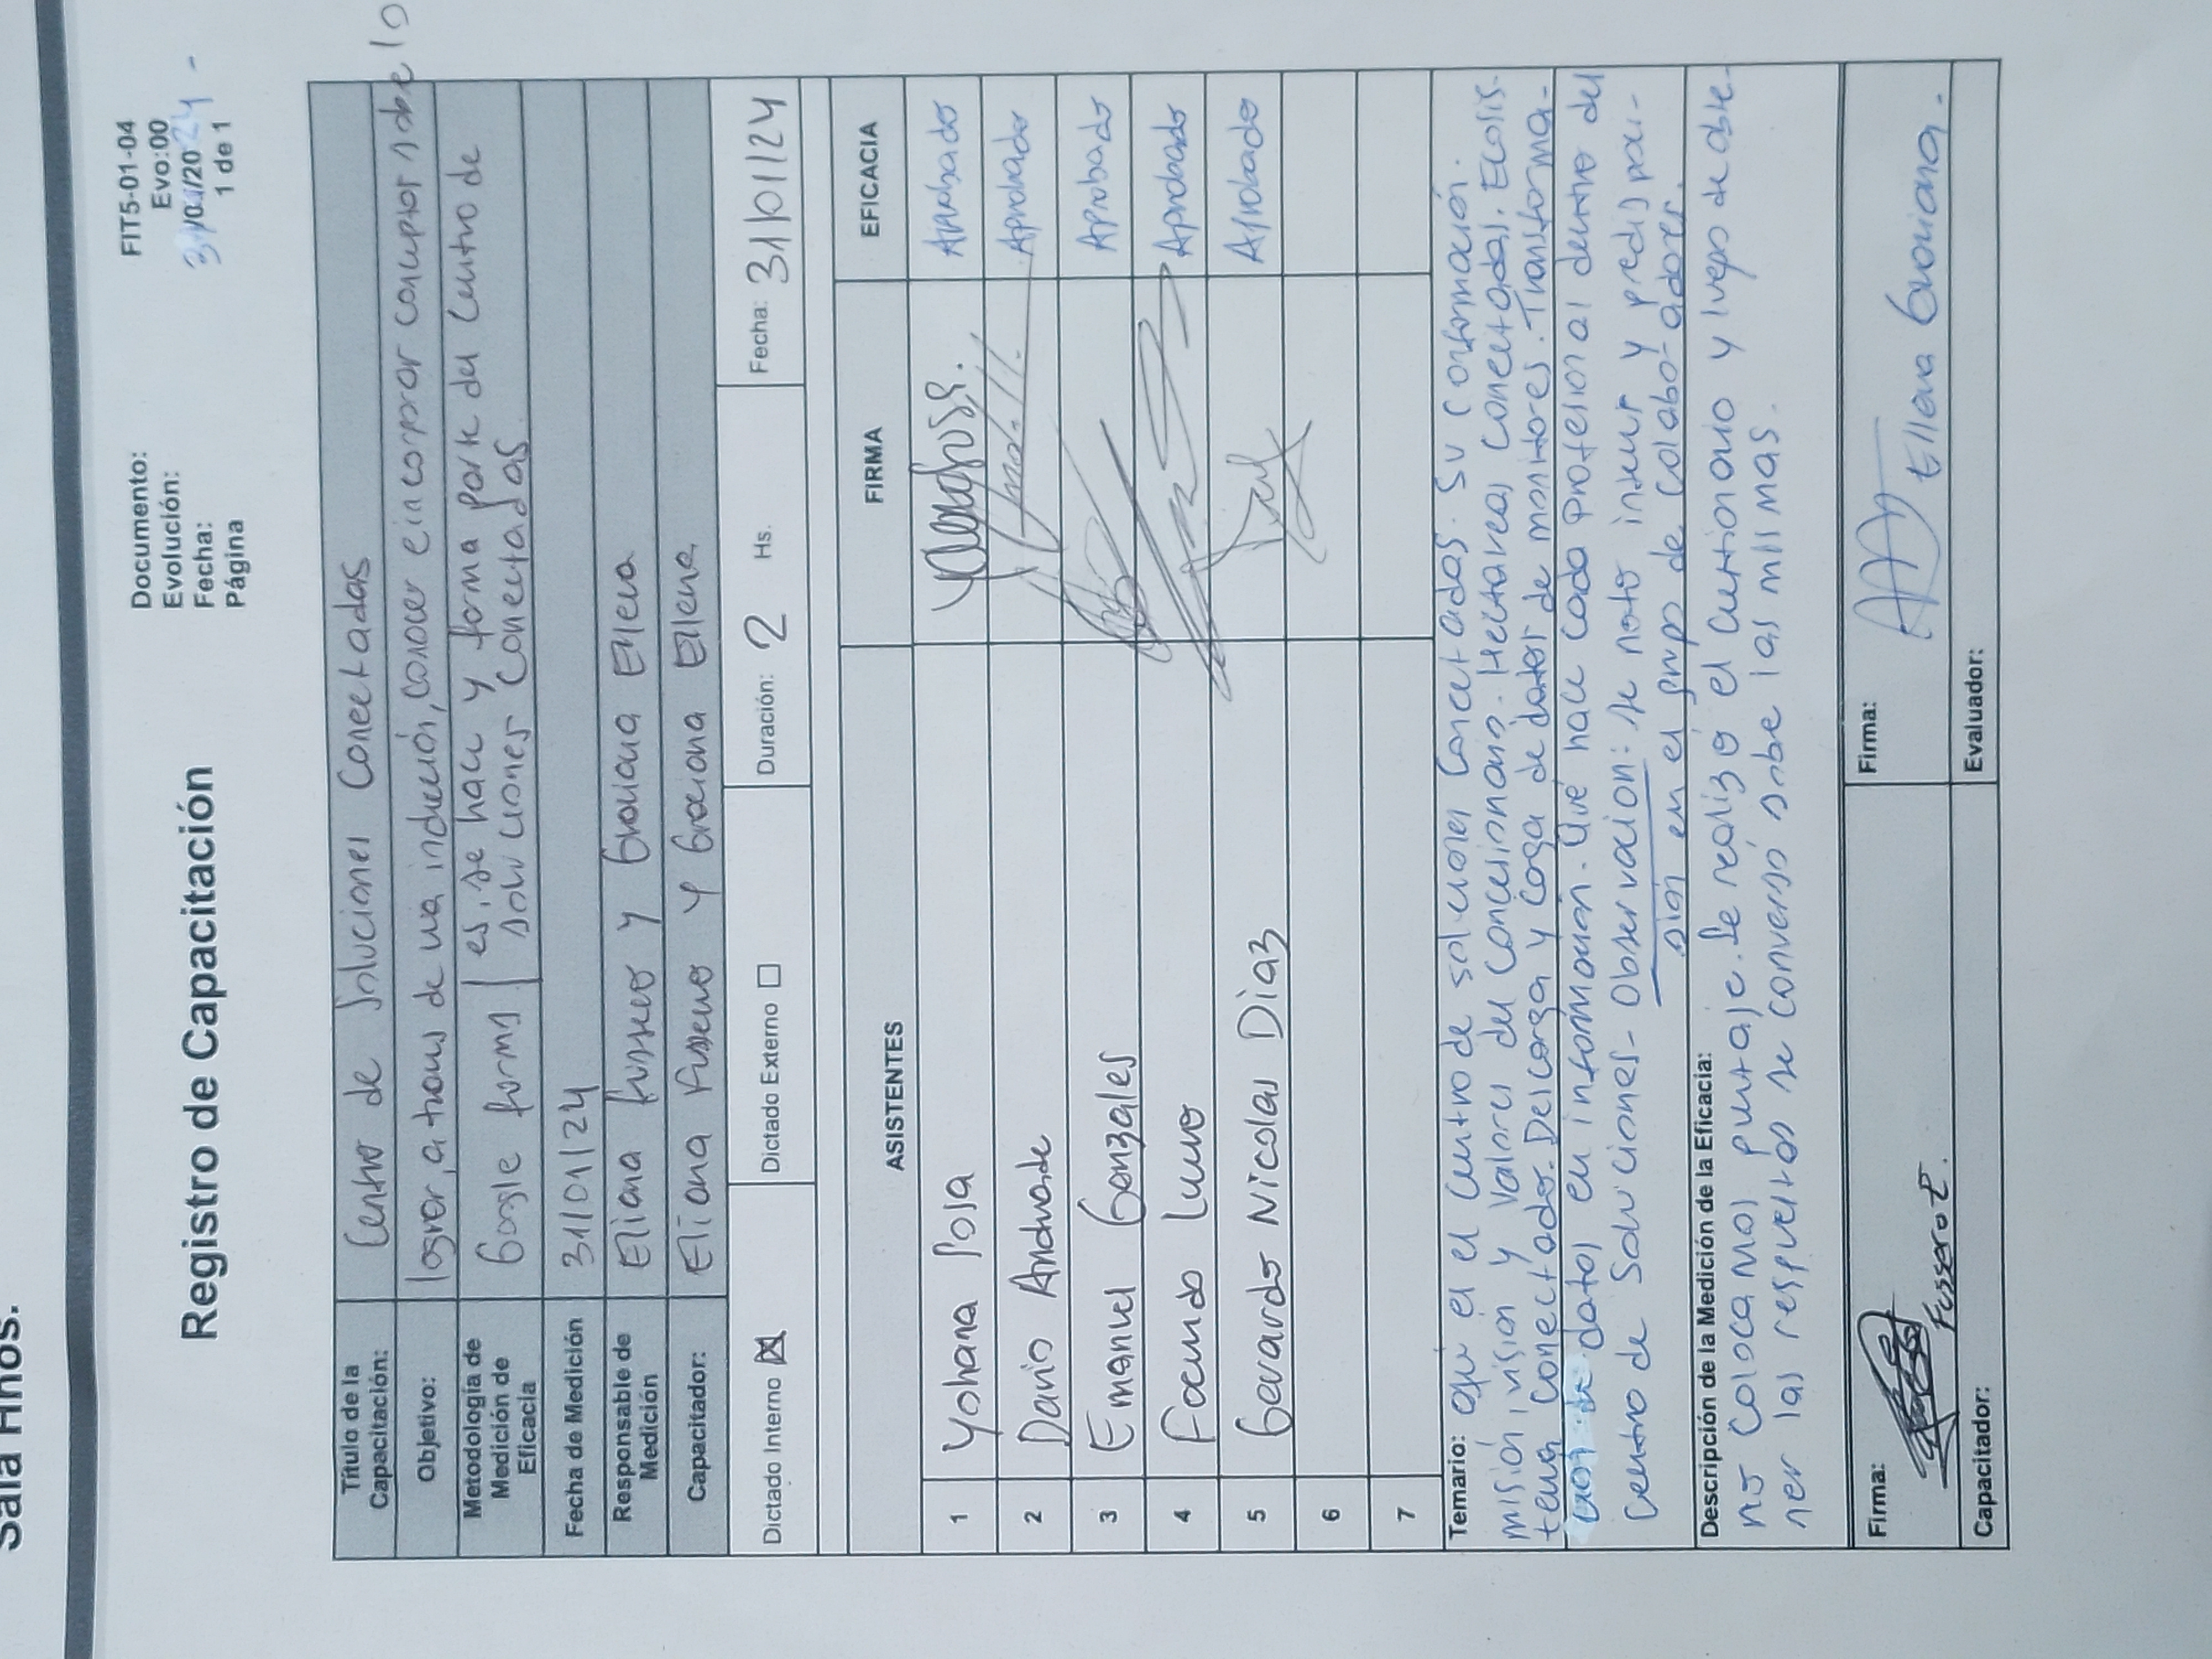 Sala Hnos.
Registro de Capacitación
Documento: FIT5-01-04
Evolución: Evo:00
Fecha: 31/01/2024 -
Página 1 de 1
Título de la Capacitación: Centro de Soluciones Conectadas
Objetivo: lograr, a traves de una inducción, conocer e incorporar conceptos sobre lo
es, se hace y forma parte del Centro de
soluciones Conectadas.
Metodología de Medición de Eficacia Google forms
Fecha de Medición 31/01/24
Responsable de Medición Eliana Fussero y Graciana Ellena
Capacitador: Eliana Fussero y Graciana Ellena
Dictado Interno ☒ Dictado Externo ☐ Duración: 2 Hs. Fecha: 31/01/24
ASISTENTES FIRMA EFICACIA
1 Yohana Sosa Aprobado
2 Dario Andrade Aprobado
3 Emanuel Gonzales Aprobado
4 Facundo Aprobado
5 Gerardo Nicolas Diaz Aprobado
6
7
Temario: Qué es el centro de soluciones Conectadas. Su conformación.
misión, visión y valores del concesionario. Hectareas Conectadas. Ecosis-
tema Conectado. Descarga y Caga de datos de monitores. Transforma-
ción de datos en información. Qué hace cada profesional dentro del
Centro de Soluciones- Observacion: se noto interes y predisposi-
sión en el grupo de colaboradores.
Descripción de la Medición de la Eficacia:
no colocamos puntaje. Se realizó el cuestionario y luego de obte-
ner las respuestas se conversó sobe las mismas.
Firma: Fussero E. Firma: Ellena Graciana.
Capacitador: Evaluador: